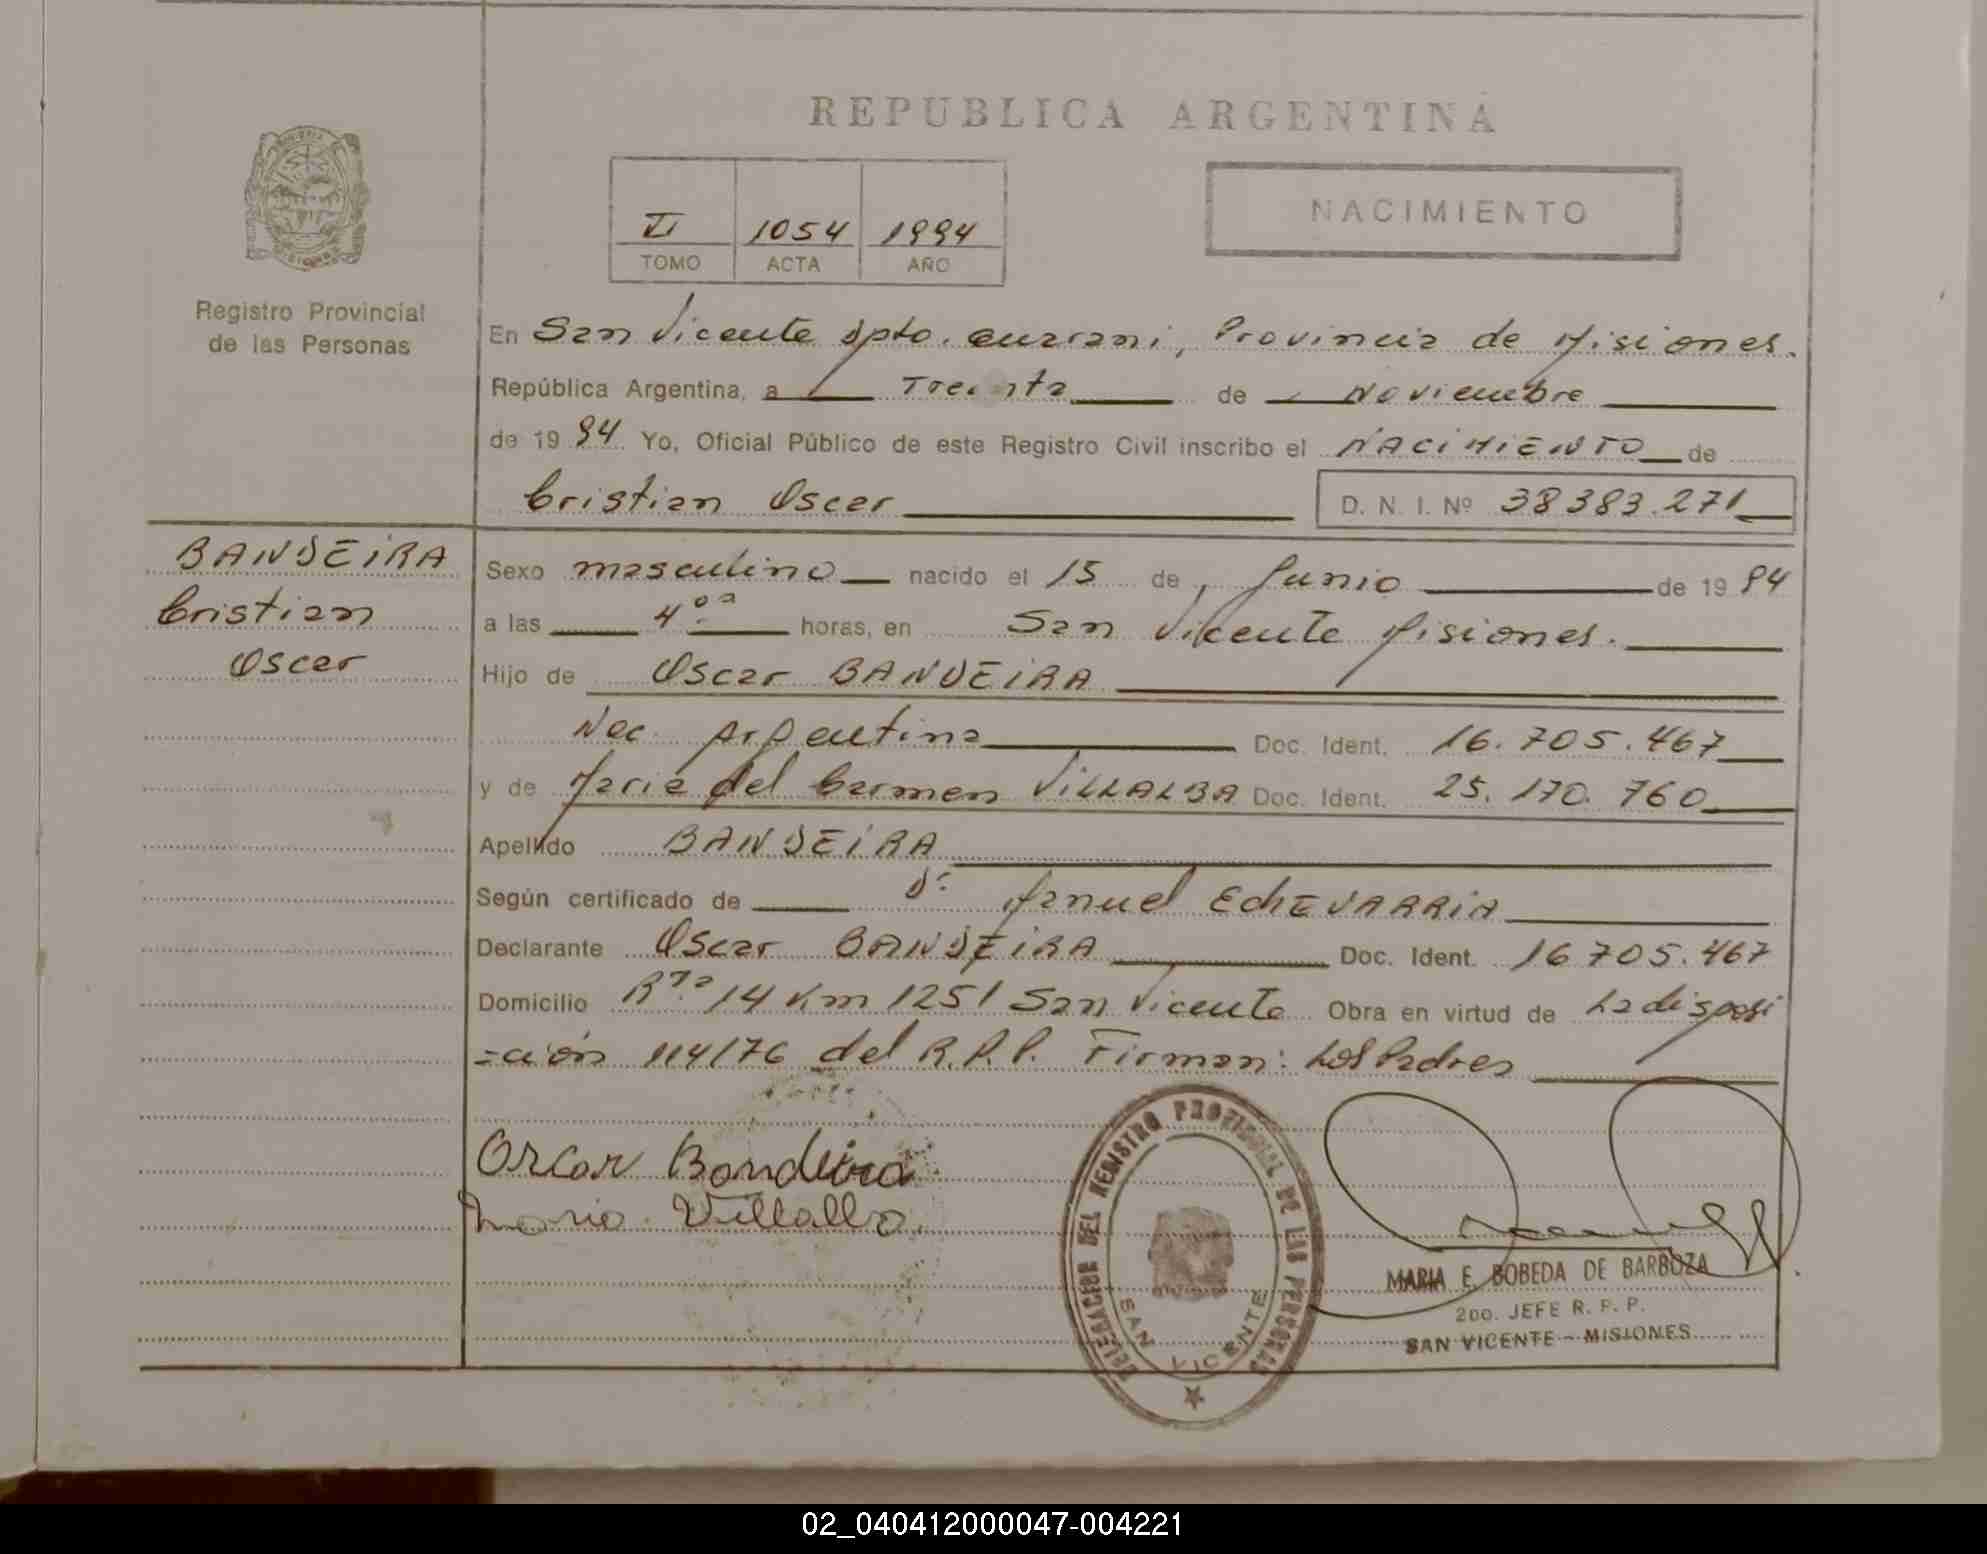 REPUBLICA ARGENTINA
VI 1054 1994
TOMO ACTA AÑO
NACIMIENTO
Registro Provincial
de las Personas
En San Vicente Dpto. Guarani, Provincia de Misiones.
República Argentina, a Treinta de Noviembre
de 1994 Yo, Oficial Público de este Registro Civil inscribo el NACIMIENTO de
Cristian Oscar D. N. I. Nº 38383.271
BANDEIRA
Cristian
Oscar
Sexo masculino nacido el 15 de Junio de 1994
a las 4:oo horas, en San Vicente Misiones.
Hijo de Oscar BANDEIRA
Nac. Argentina Doc. Ident. 16.705.467
y de Maria del Carmen VILLALBA Doc. Ident. 25.170.760
Apellido BANDEIRA
Según certificado de Dr. Manuel EchEVARRIA
Declarante Oscar BANDEIRA Doc. Ident. 16705.467
Domicilio Rta 14 Km 1251 San Vicente Obra en virtud de La disposi
=ción 114/76 del R.P.P. Firman: Los Padres
Oscar Bandeira
Maria Villalba
DELEGACION DEL REGISTRO PROVINCIAL DE LAS PERSONAS
SAN VICENTE
MARIA E. BOBEDA DE BARBOZA
2DO. JEFE R. P. P.
SAN VICENTE - MISIONES
02_040412000047-004221